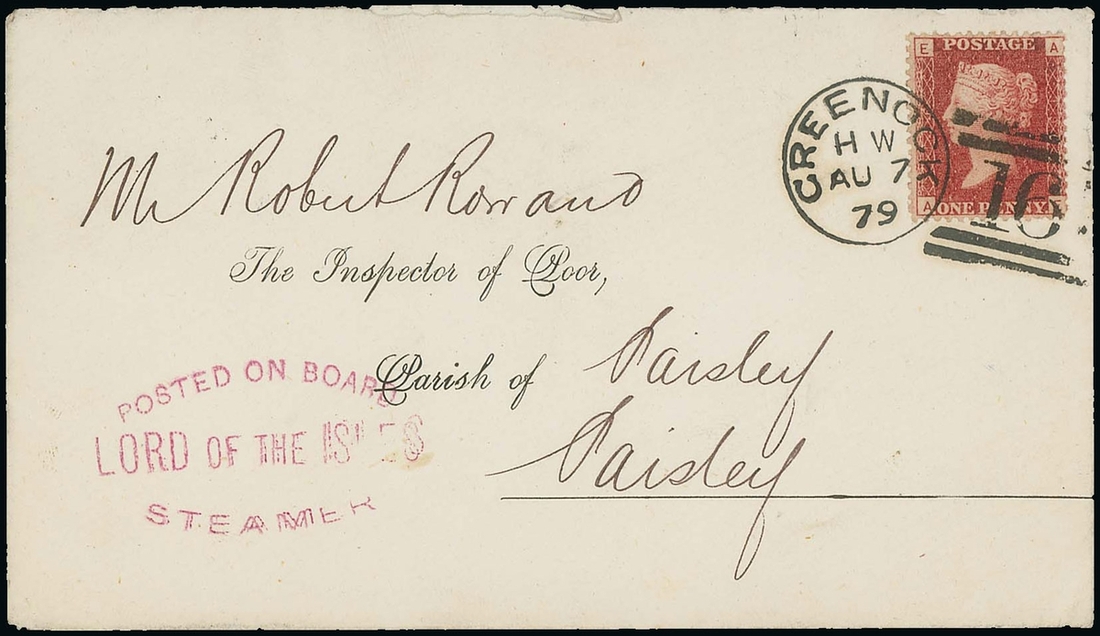 E POSTAGE A
A ONE PENNY
GREENOCK
H W
AU 7
79
16
Mr Robert Rowand
The Inspector of Poor,
Parish of Paisley
Paisley
POSTED ON BOARD
LORD OF THE ISLES
STEAMER